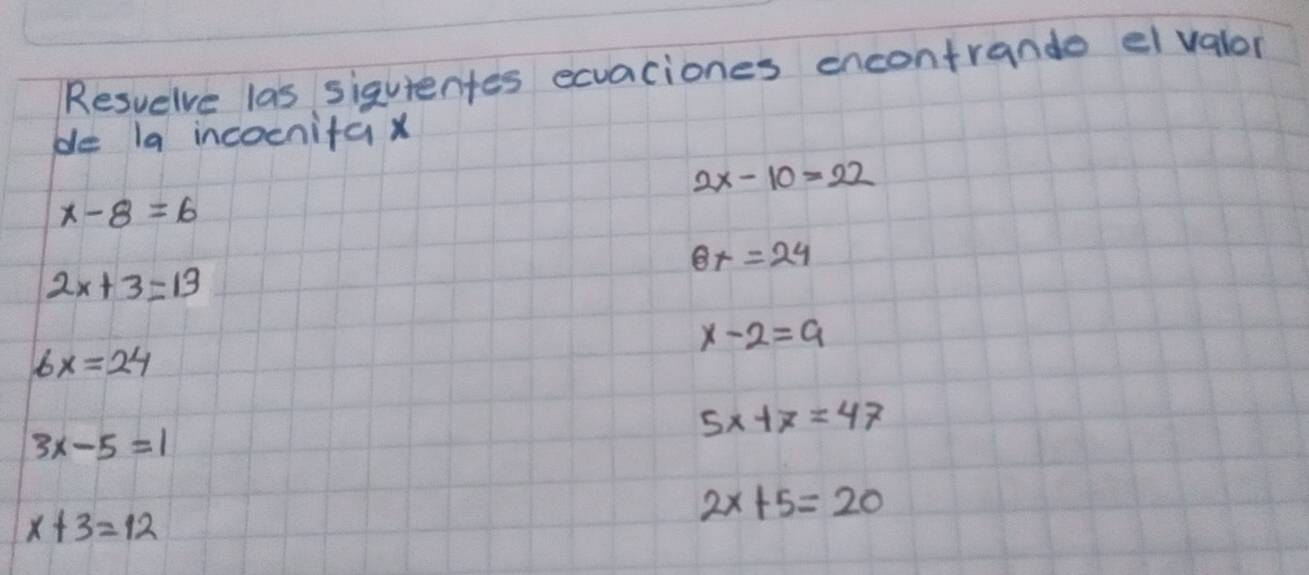 Resuelve las siguientes ecuaciones encontrando el valor
de la incocnita x
x-8=6
2x+3=13
6x=24
3x-5=1
x+3=12
2x-10=22
8x=24
x-2=9
5x+7=47
2x+5=20